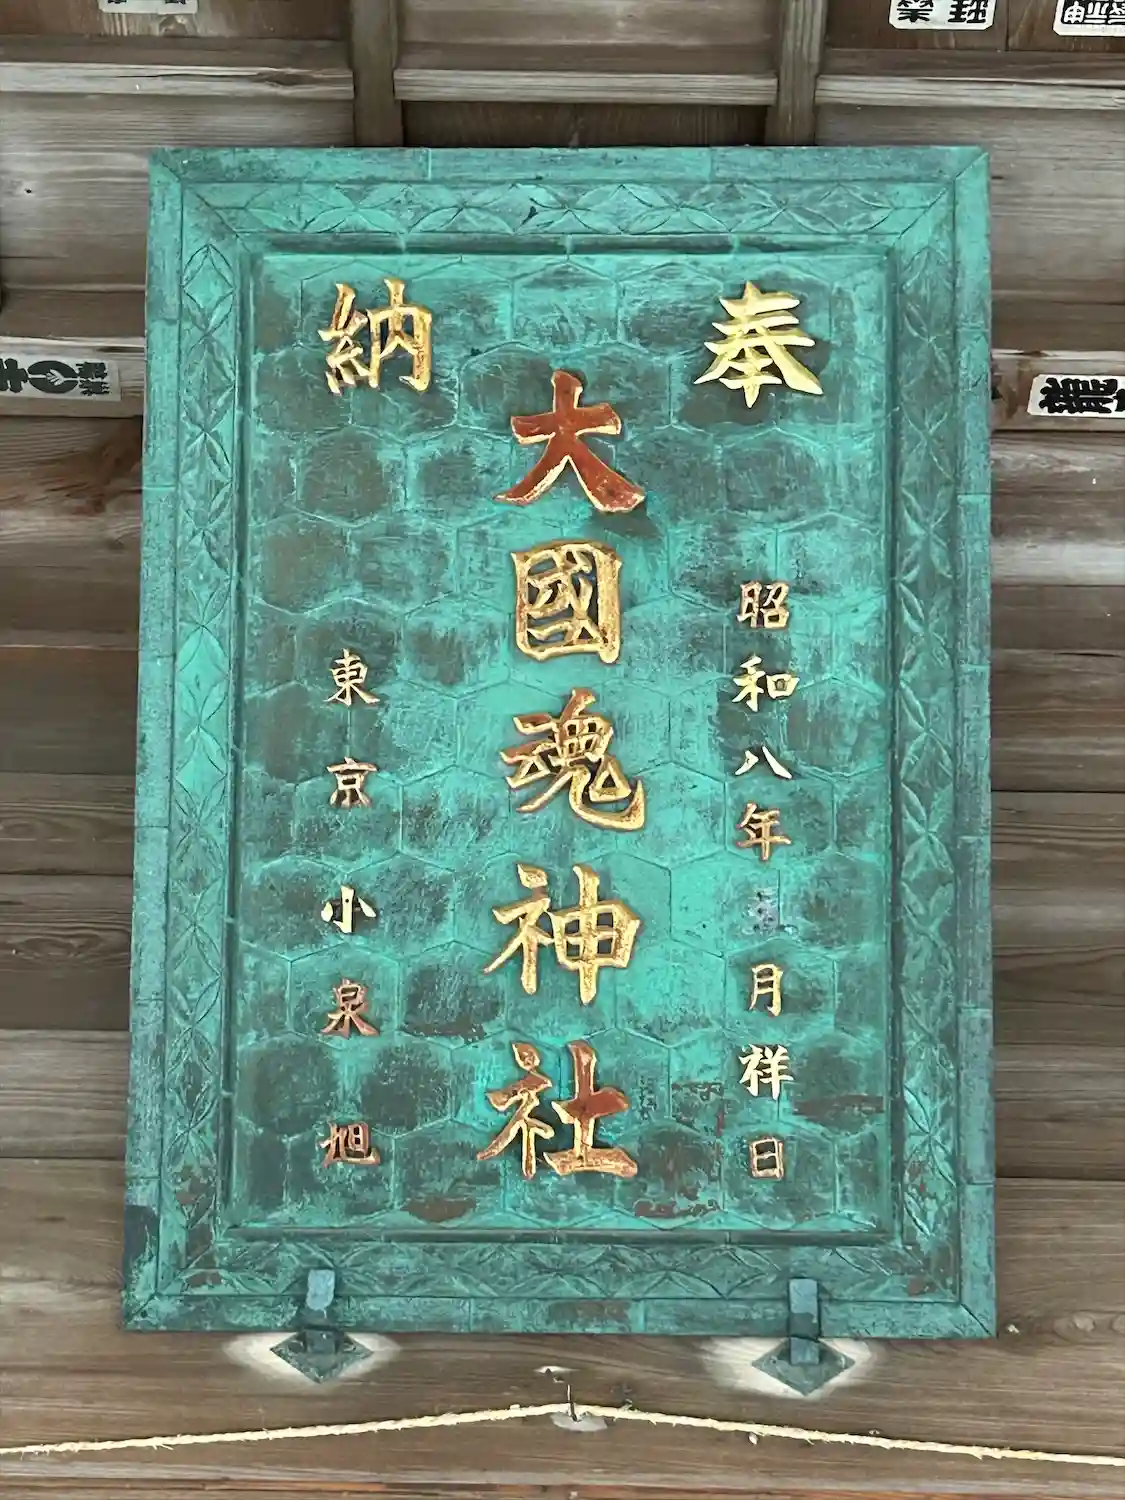 奉納
昭和八年五月祥日
大國魂神社
東京小泉旭